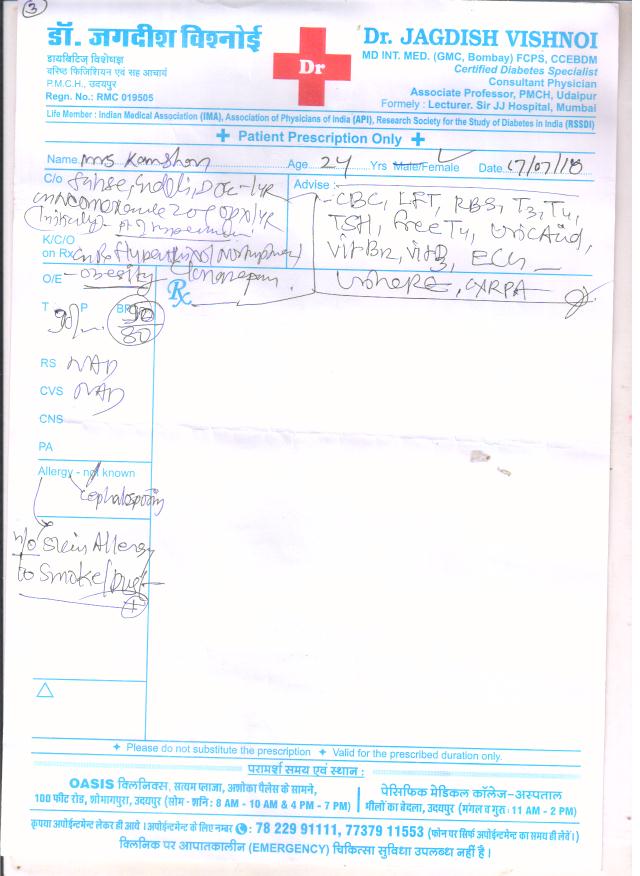 3
डॉ. जगदीश विश्नोई
डायबिटिज विशेषज्ञ
वरिष्ठ फिजिशियन एवं सह आचार्य
P.M.C.H., उदयपुर
Regn. No.: RMC 019505
Dr
Dr. JAGDISH VISHNOI
MD INT. MED. (GMC, Bombay) FCPS, CCEBDM
Certified Diabetes Specialist
Consultant Physician
Associate Professor, PMCH, Udaipur
Formely : Lecturer. Sir JJ Hospital, Mumbai
Life Member : Indian Medical Association (IMA), Association of Physicians of India (API), Research Society for the Study of Diabetes in India (RSSDI)
Patient Prescription Only
Name Mrs Age 24 Yrs Male/Female Date 17/07/18
C/o
K/C/O
on Rx
Advise :
CBC, LFT, RBS, T3, T4,
TSH, free T4, Uric Acid,
Vit B12, Vit D3, ECG
CXRPA
O/E obesity
Rx
T P BP 90/80
RS NAD
CVS NAD
CNS
PA
Allergy - not known
cephalosporin
H/o Skin Allergy
to Smoke/Dust
+
△
Please do not substitute the prescription + Valid for the prescribed duration only.
परामर्श समय एवं स्थान :
OASIS क्लिनिक्स, सत्यम प्लाजा, अशोका पैलेस के सामने,
100 फीट रोड, शोभागपुरा, उदयपुर (सोम - शनि : 8 AM - 10 AM & 4 PM - 7 PM)
पेसिफिक मेडिकल कॉलेज-अस्पताल
भीलों का बेदला, उदयपुर (मंगल व गुरु : 11 AM - 2 PM)
कृपया अपोईन्टमेन्ट लेकर ही आये । अपोईन्टमेन्ट के लिए नम्बर : 78 229 91111, 77379 11553 (फोन पर सिर्फ अपोईन्टमेन्ट का समय ही लेवें।)
क्लिनिक पर आपातकालीन (EMERGENCY) चिकित्सा सुविधा उपलब्ध नहीं है ।